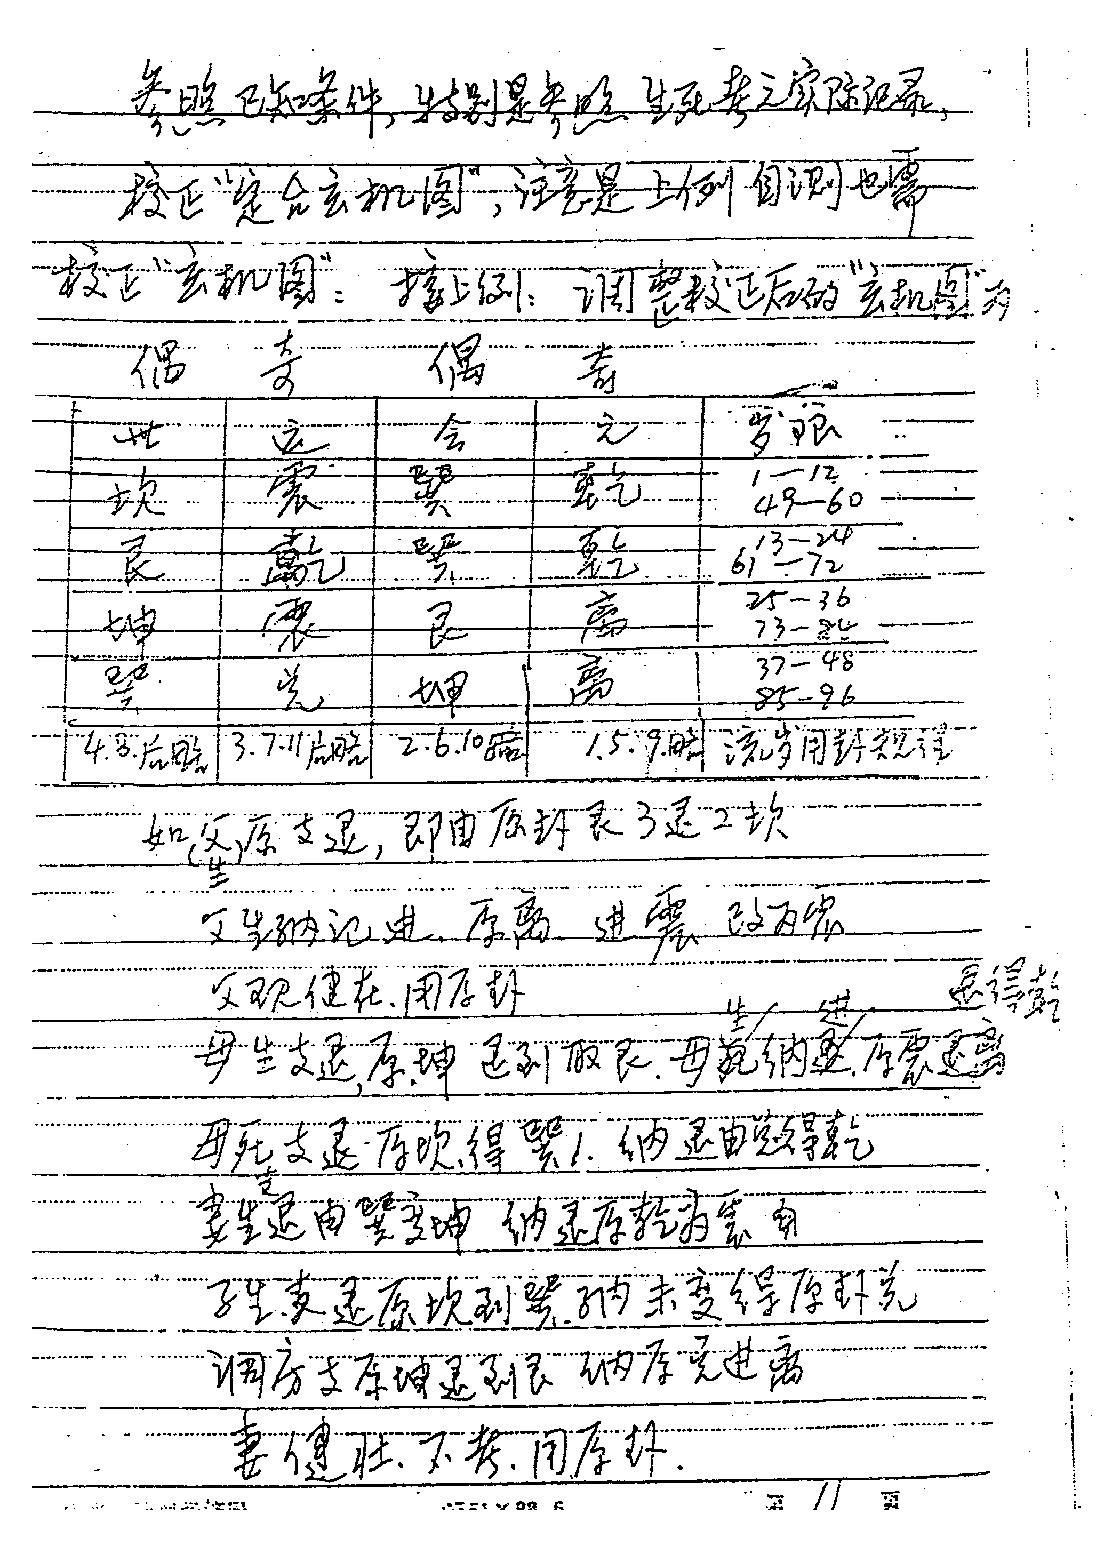 参照已知条件,特别是参照生死考之实际记录,
校正"定合玄机图",注意是上例自测也需
校正"玄机图"。接上例:调整校正后的"玄机图"为
偶 奇 偶 奇
世 运 会 元 岁限
坎 震 巽 乾 1—12 49—60
艮 乾 巽 乾 13—24 61—72
坤 震 艮 离 25—36 73—84
巽 兑 坤 离 37—48 85—96
4.8.后暗 3.7.11后暗 2.6.10暗 1.5.9.暗 流岁用卦规律
如(父生)原支退,即由原卦艮3退2坎
父生纳记进.原离 进震 改为震
父现健在.用原卦
退得乾
生 进
母生支退,原坤退到取艮.母死纳退.原震退离
母死支退.原坎得巽1.纳退由 得乾
妻生支退由巽变坤 纳退原乾为震
子生支退原坎到巽.纳未变得原卦兑
调房支原坤退到艮 纳原兑进离
妻健壮.不考.用原卦.
第 11 页